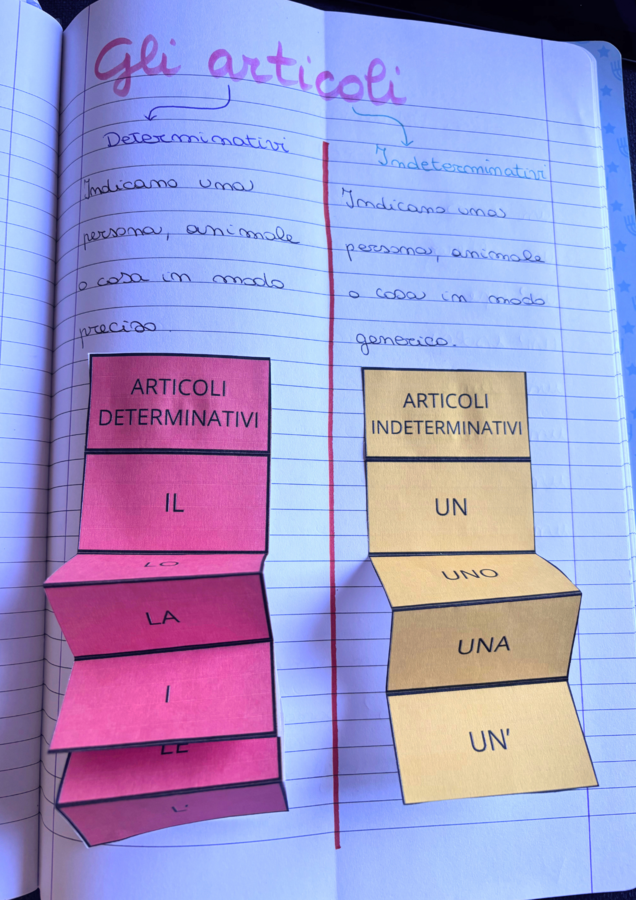 Gli articoli
Determinativi
Indicano una
persona, animale
o cosa in modo
preciso.
ARTICOLI
DETERMINATIVI
IL
LO
LA
I
LE
L'
Indeterminativi
Indicano una
persona, animale
o cosa in modo
generico.
ARTICOLI
INDETERMINATIVI
UN
UNO
UNA
UN'